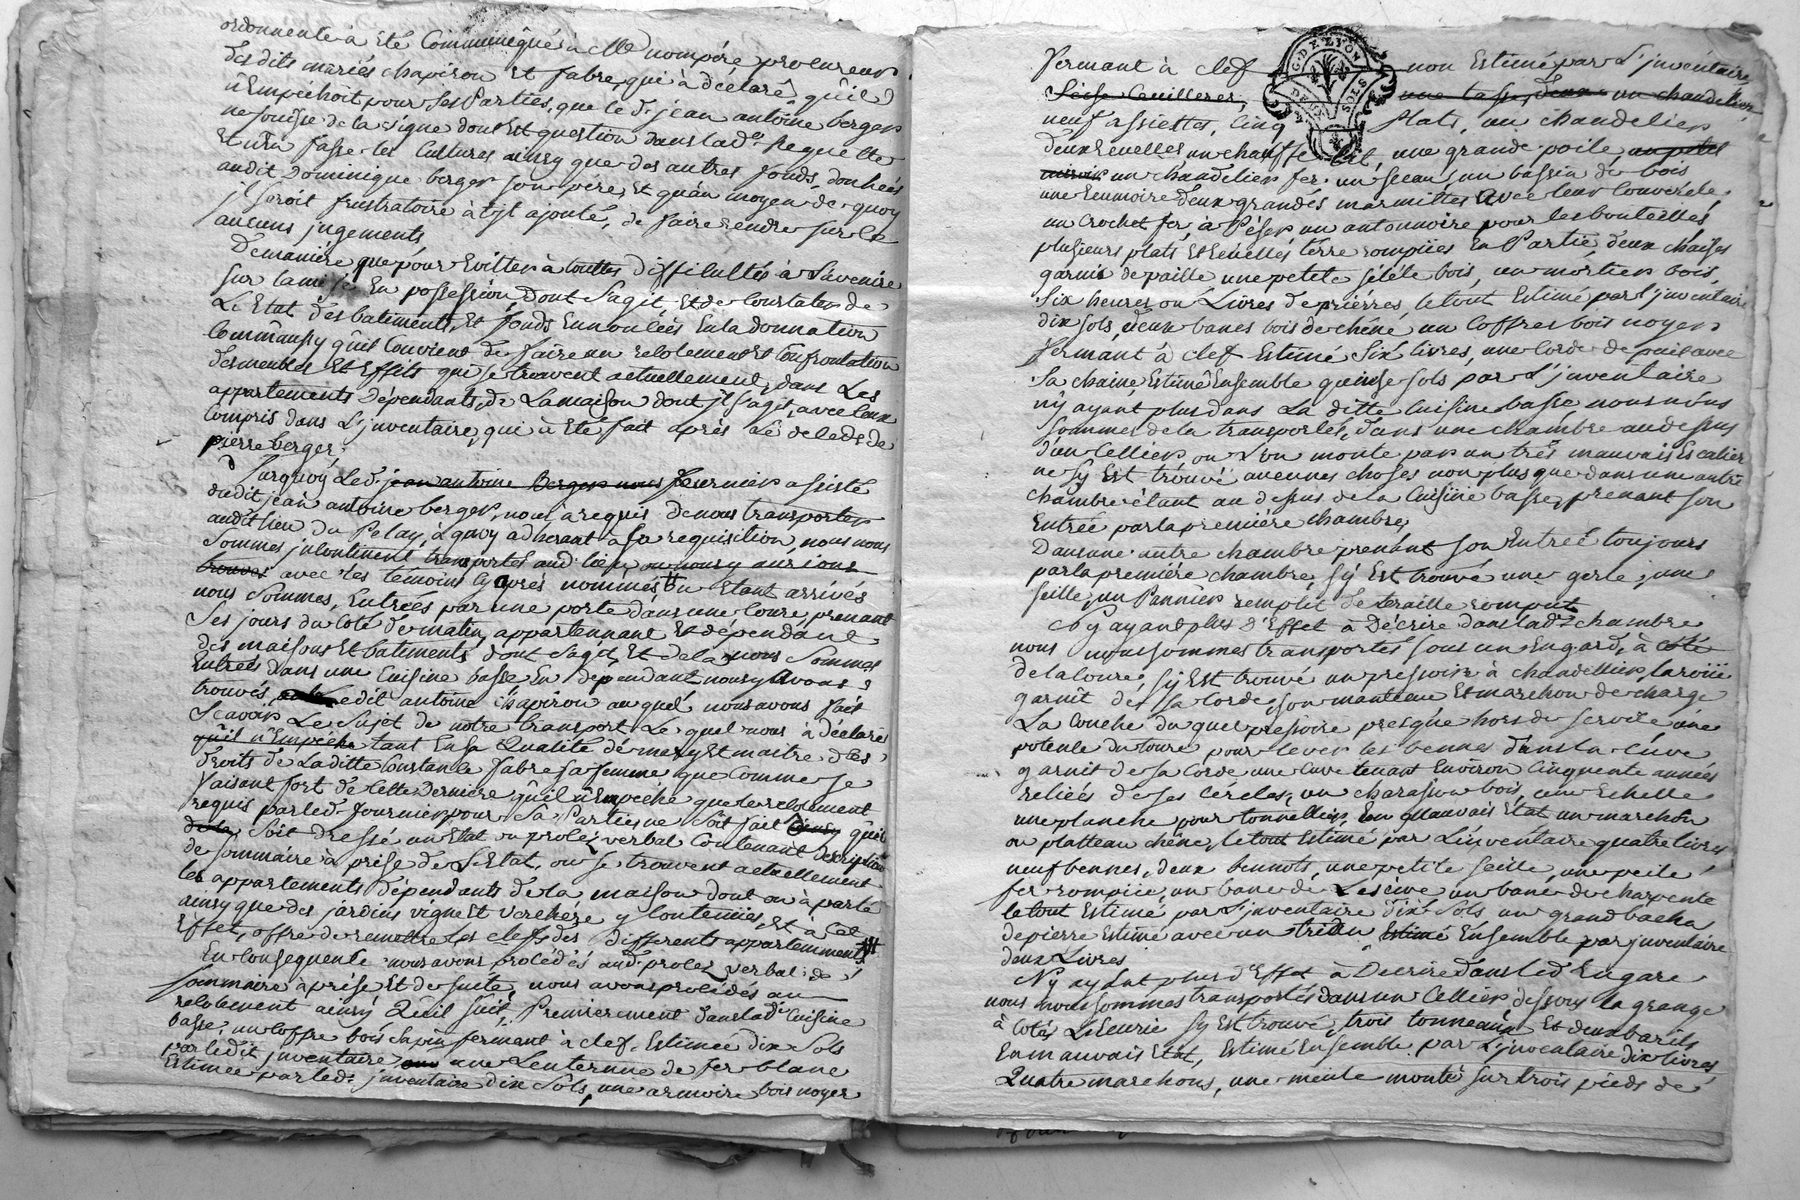 ordonnente a été Communiqué à Me nompére procureur
des dits mariés chapiron et fabre, qui à déclaré qu'il
n'Empechoit pour ses Parties, que le d. jean antoine berger
ne jouisse de la vigne dont Est question dans lad.e Requette
Et n'en fasse les Cultures ainsy que des autres fonds, donnés
audit Dominique berger son père, Et qu'an moyen de quoy
il seroit frustratoire à ajouté, de faire rendre sur la
aucuns jugements,
De maniére que pour Eviter à touttes Difficultés à l'avenir
sur la mise En possession Dont s'agit, Et de Constater de
L'Etat des batiments, Et fonds Ennoncées En la donnation
Comm'aussy qu'il Convient de faire un recolement Et Confrontation
des meubles Et Effets qui se trouvent actuellement, dans Les
appartements Dépendants, de La maison dont jl s'agit, avec Ceux
Compris dans L'jnventaire, qui à Eté fait après Le décéds de
pierre berger,
Surquoy Led. jean antoine Berger nous fournier assisté
dudit jean antoine berger, nous à requis de nous transporter
audit lieu du Pelay, à quoy adherant à sa requisition, nous nous
Sommes jncontinent transportés aud. lieu, ou nous y aurions
trouvés avec les témoins Cy après nommés, ou Etant arrivés
nous Sommes, Entrées par une porte dans une Coure, prenant
Ses jours du Coté de matin, appartennant Et dépendant
des maisons Et batiments dont s'agit, Et de la nous Sommes
Entrés dans une Cuisine basse En dépendant nous y avons
trouvés ledit antoine Chapiron auquel nous avons fait
Scavoir Le Sujet de notre transport Le quel nous à déclaré
qu'il n'Empéche tant En sa Qualité de mary Et maitre des
droits de Laditte Constance fabre sa femme que Comme se
faisant fort de Cette derniére qu'il n'Empeche que le recolement
requis par led. fournier pour Sa Partie ne Soit fait qu'il
Soit Dressé un Etat ou procez verbal Contenant description
de sommaire à prise de L'Etat, ou se trouvent actuellement
les appartements dépendants de la maison dont on à parlé
ainsy que des jardins vigne Et Verchére y Contenües, Et à Cet
Effet, offre de remettre Les clefs des différents appartemments
En Consequence nous avons procédés aud. procez verbal de
sommaire aprise Et de suite, nous avons procédés au
recolement ainsy Qu'il suit, Premierement dans lad.e Cuisine
basse, un Coffre bois sapin fermant à clef, Estimée dix Sols
par ledit jnventaire une Lenterne de fer blanc
Estimée par led. jnventaire dix Sols, une armoire bois noyer
Fermant à clef non Estimé par L'jnventaire
Seise Ceuilleres, une tasse, deux un chandelier
neuf assiettes, Cinq plats, un chandelier
deux Ecuelles un chauffe lit, une grande poile, un petit
un chandelier fer, un Sceau, un bassin de bois
une Ecumoire deux grandes marmittes avec leur Couvercle,
un Crochet fer, à Péser un antonnoire pour les bouteilles
plusieurs plats Et Ecuelles terre rompües En Partie, deux chaises
garnie de paille une petite seléte bois, un mortier bois,
Six heures ou Livres de priérres, le tout Estimé par l'jnventaire
dix sols, deux bancs bois de chéne un Coffre bois noyer
fermant à clef Estimé Six livres, une Corde de puit avec
Sa chaine, Estimé Ensemble quinse sols par L'jnventaire
n'y ayant plus dans La ditte Cuisine basse nous nous
sommes de la transportés, dans une chambre au dessus
d'un Cellier ou L'on monte par un trés mauvais Escalier
ne s'y Est trouvé aucunes choses non plus que dans une autre
chambre étant au dessus de la Cuisine basse, prenant son
Entrée par la premiére chambre,
Dans une autre chambre prenant son Entreé toujours
par la premiére chambre, s'y Est trouvé une gerle, une
seille, un Pannier remplit de feraille rompüe
N'y ayant plus d'Effet à Décrire dans lad.e chambre
nous nous sommes transportés sous un Engard, à coté
de la Coure, s'y Est trouvé un pressoir à chandellier, la roüe
garnit de sa Corde, son manteau Et marchon de charge
La Couche du quel pressoire presque hors de service une
potence du Coure pour lever les bennes dans la Cuve
garnit de sa Corde une Cuve tenant Environ Cinquente années
reliées de ses Cércles, un charasson bois, une Echelle
une planche pour tonnellier, En mauvais Etat un marchon
ou platteau chéne, le tout Estimé par L'inventaire quatre livres
neuf bennes, deux bennots, une petite seille, une poile
fer rompüe, un banc de Lescive un banc de charpente
le tout Estimé par L'jnventaire dix Sols, un grand bacha
de pierre Estimé avec un Estimé Ensemble par jnventaire
deux Livres
N'y ayant plus d'Effet à Décrire dans led. Engare
nous nous sommes transportés dans un Cellier dessous la grange
à Coté L'Ecurie s'y Est trouvé, trois tonneaux Et deux barils
En mauvais Etat, Estimé Ensemble par L'jnventaire dix livres
Quatre marchons, une meule monté sur trois pieds de
G. DE LYON
DEUX SOLS